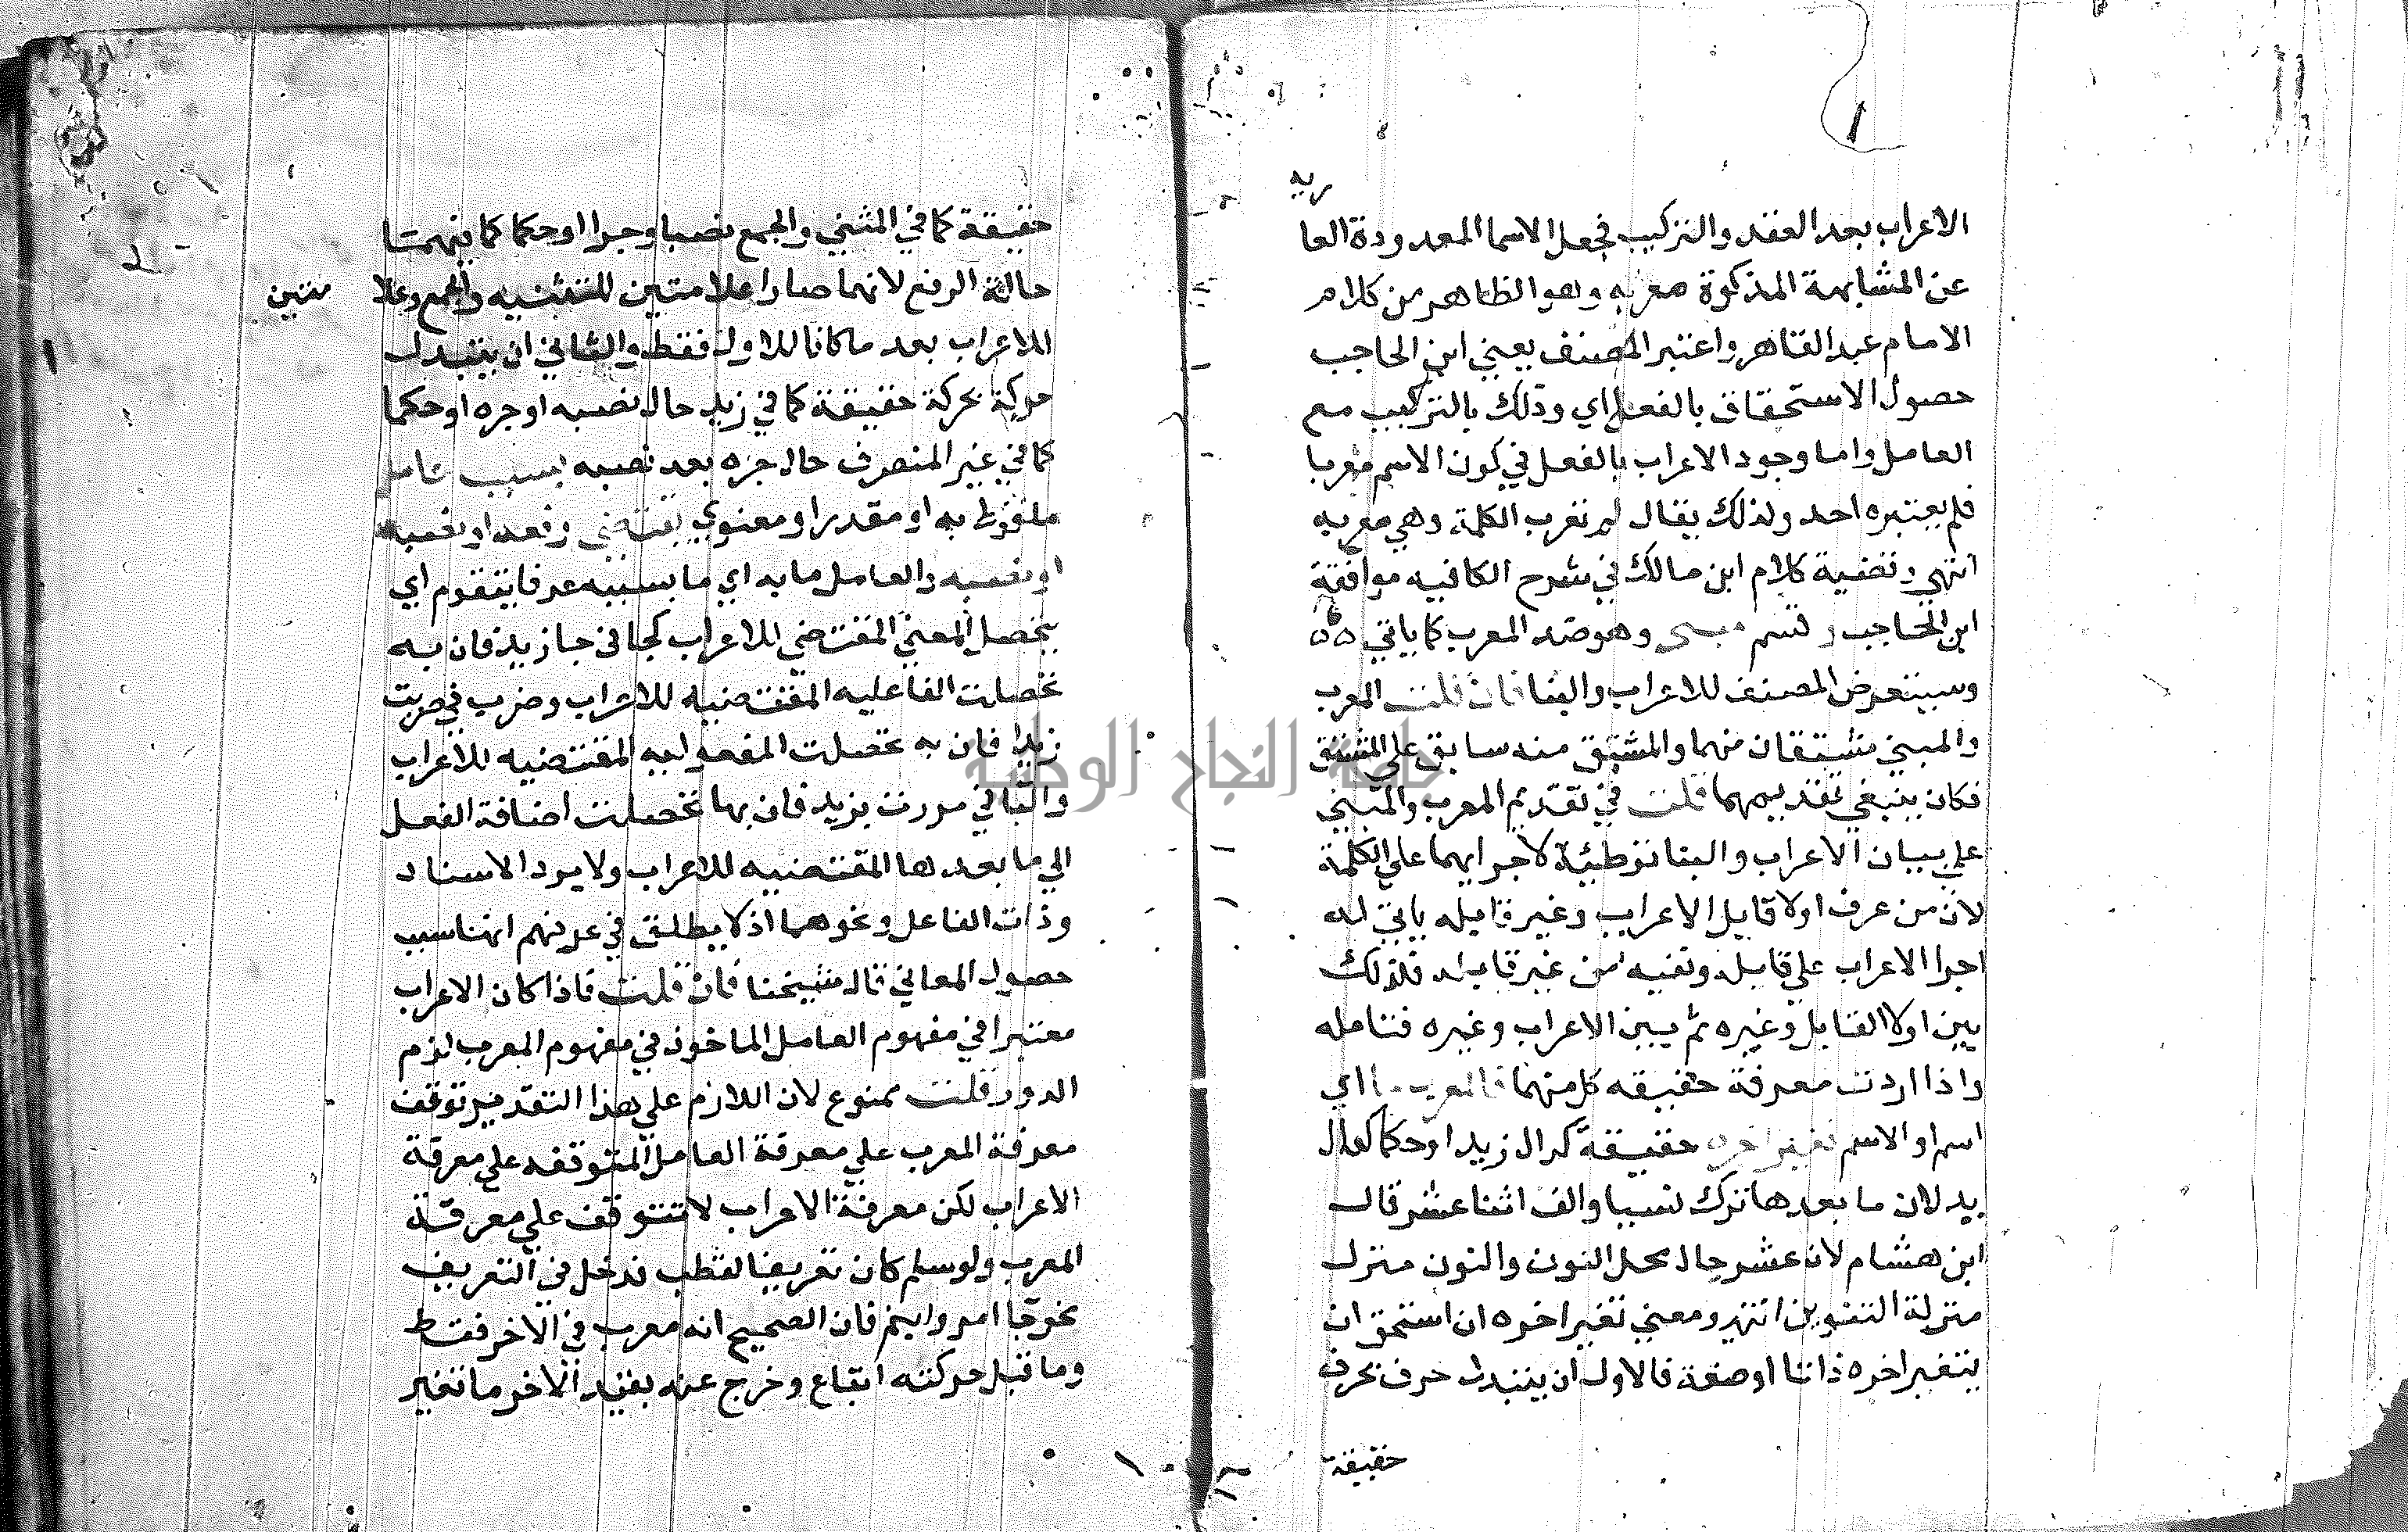 الاعراب بعد العقد والتركيب فجعل الاسما المعدودة العا
ريه
عن المشابهة المذكوة معربه وهو الظاهر من كلام
الامام عبد القاهر واعتبر المصنف يعني ابن الحاجب
حصول الاستحقاق بالفعل اي وذلك بالتركيب مع
العامل واما وجود الاعراب بالفعل في كون الاسم معربا
فلم يعتبره احد ولذلك يقال لم تعرب الكلمة وهي معربه
انتهى وقضية كلام ابن مالك في شرح الكافيه موافقة
ابن الحاجب وقسم مبني وهو ضد المعرب كما ياتي
وسيتعرض المصنف للاعراب والبنا فان قلت المعرب
والمبني مشتقان منهما والمشتق منه سابق على المشتق
فكان ينبغي تقديمهما قلت في تقديم المعرب والمبني
على بيان الاعراب والبنا توطئة لاجرايهما على الكلمة
لان من عرف اولا قابل الاعراب وغير قابله ياتي له
اجرا الاعراب على قابله ونفيه من غير قابله فلذلك
بين اولا القابل وغيره ثم يبين الاعراب وغيره فتامله
واذا اردت معرفة حقيقه كل منهما فالمعرب ما اي
اسم او الاسم تغير اخره حقيقة كدال زيد او حكما كدال
يد لان ما بعدها ترك نسيا والف اثنا عشر قال
ابن هشام لان عشر حال محل النون والنون منزل
منزلة التنوين انتهى ومعني تغير اخره ان استحق ان
يتغير اخره ذاتا او صفة فالاول ان يتبدل حرف بحرف
حقيقة
حقيقة كما في المثني والجمع نصبا وجرا او حكما كما فيهما
حالة الرفع لانهما صارا علامتين للتثنيه والجمع وعلا
متين
للاعراب بعد ما كانا للاول فقط والثاني ان يتبدل
حركة بحركة حقيقة كما في زيد حال نصبه او جره او حكما
كما في غير المنصرف حال جره بعد نصبه بسبب عامل
ملفوظ به او مقدر او معنوي يقتضي رفعه او نصبه
او نصبه والعامل ما به اي ما بسببه عرفا يتقوم اي
يتحصل المعني المقتضي للاعراب كجا في جا زيد فان به
تحصلت الفاعليه المقتضيه للاعراب وضرب في ضربت
زيدا فان به تحصلت المفعوليه المقتضيه للاعراب
والبا في مررت بزيد فان بها تحصلت اضافة الفعل
الي ما بعدها المقتضيه للاعراب ولا يرد الاسناد
وذات الفاعل ونحوهما اذ لا يطلق في عرفهم انها سبب
حصول المعاني قال شيخنا فان قلت فاذا كان الاعراب
معتبرا في مفهوم العامل الماخوذ في مفهوم المعرب لزم
الدور قلت ممنوع لان اللازم على هذا التقدير توقف
معرفة المعرب على معرفة العامل المتوقفه على معرفة
الاعراب لكن معرفة الاعراب لا تتوقف على معرفة
المعرب ولو سلم كان تعريفا لفظيا فدخل في التعريف
نحو جا امرو وابنم فان الصحيح انه معرب في الاخر فقط
وما قبل حركته اتباع وخرج عنه بقيد الاخر ما تغير
جامعة النجاح الوطنية